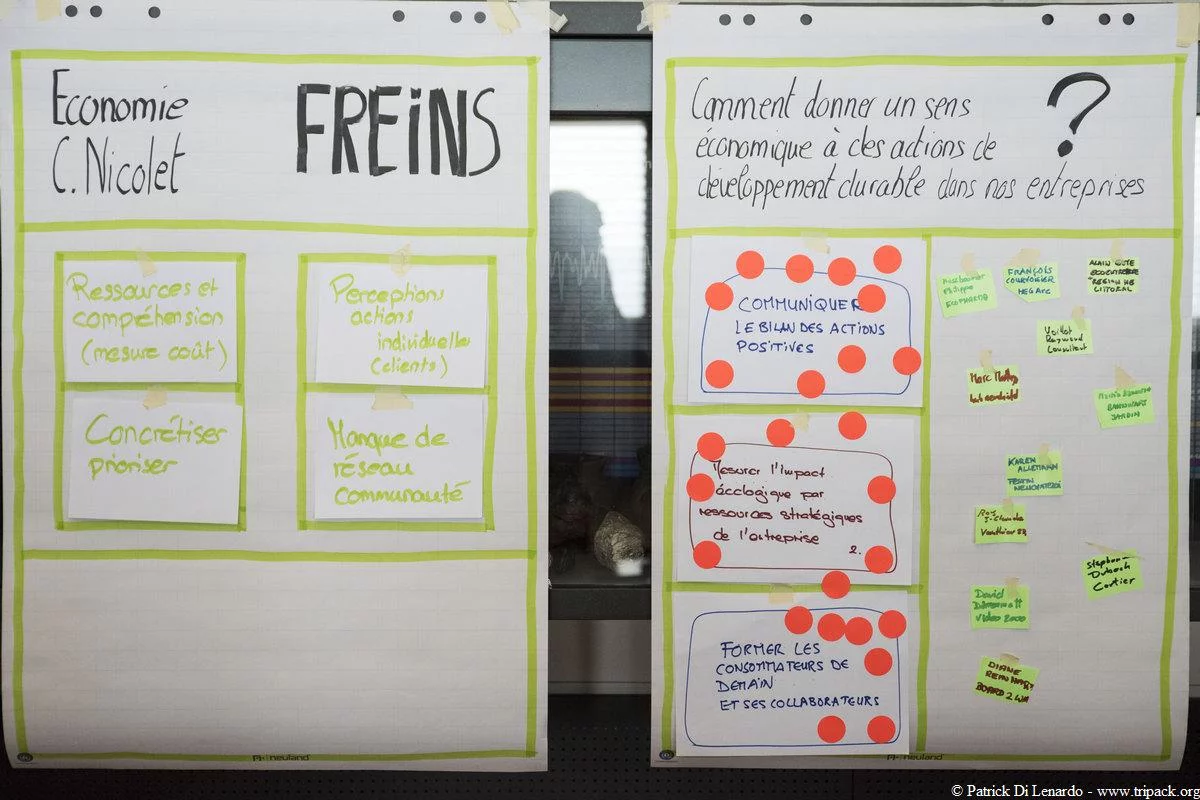 Economie
C. Nicolet
FREiNS
Ressources et
compréhension
(mesure coût)
Perceptions
actions
individuelles
(clients)
Concrétiser
prioriser
Manque de
réseau
communauté
neuland
Comment donner un sens
économique à des actions de
développement durable dans nos entreprises
?
COMMUNIQUER
LE BILAN DES ACTIONS
POSITIVES
Mesurer l'impact
écologique par
ressources stratégiques
de l'entreprise
2.
FORMER LES
CONSOMMATEURS DE
DEMAIN
ET SES COLLABORATEURS
Philippe
FRANÇOIS
COURVOISIER
HEG Arc
ALAIN
REGION
LITTORAL
Raymond
Consultant
Marc
JARDIN
KAREN
ALLEMANN
FESTIN
NEUCHATELOIS
Roy
J-Claude
Vauthier
Stephane
Cartier
David
Video 2000
DIANE
REINHARD
neuland
© Patrick Di Lenardo - www.tripack.org